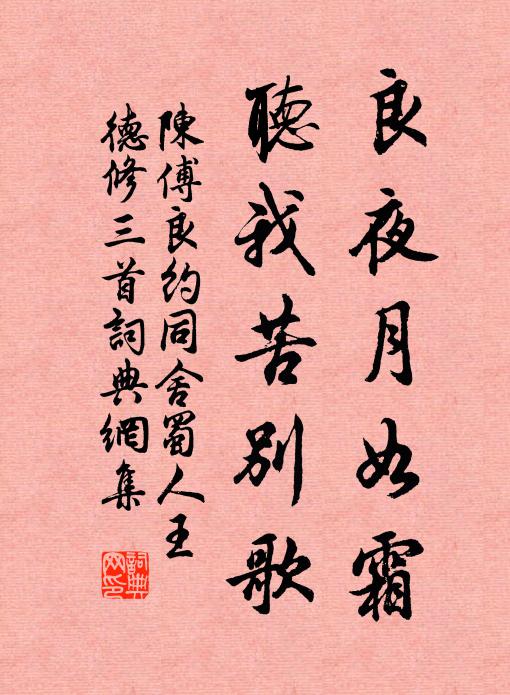 良夜月如霜
聽我苦別歌
陳傅良約同舍蜀人王
德修三首詞典網集
詞典
网印